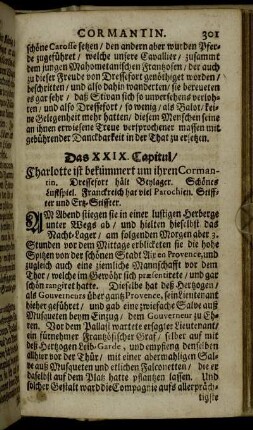 CORMANTIN. 301
schöne Carosse setzen / den andern aber wurden Pfer-
de zugeführet / welche unsere Cavallier / zusammt
dem jungen Mahometanischen Frantzosen / der auch
zu dieser Freude von Dressefort genöthiget worden /
beschritten / und also dahin wanderten / sie bereueten
es gar sehr / daß Stivan sich so unversehens verloh-
ren / und also Dressefort / so wenig / als Balot / kei-
ne Gelegenheit mehr hatten / diesem Menschen seine
an ihnen erwiesene Treue versprochener massen mit
gebührender Danckbarkeit in der That zu ersetzen.
Das XXIX. Capitul /
Charlotte ist bekümmert um ihren Corman-
tin. Dressefort hält Beylager. Schönes
Lustspiel. Franckreich hat viel Parochien. Stif-
ter und Ertz-Stiffter.
AM Abend stiegen sie in einer lustigen Herberge
unter Wegs ab / und hielten hieselbst das
Nacht-Lager / am folgenden Morgen aber 3.
Stunden vor dem Mittage erblicketen sie die hohe
Spitzen von der schönen Stadt Aix en Provence, und
zugleich auch eine ziemliche Mannschafft vor dem
Thor / welche im Gewöhr sich præsentirete / und gar
schön rangiret hatte. Dieselbe hat deß Hertzogen /
als Gouverneurs über gantz Provence, sein Lieutenant
hieher geführet / und gab eine zwiefache Salve aus
Musqueten beym Einzug / dem Gouverneur zu Eh-
ren. Vor dem Pallast wartete ersagter Lieutenant /
ein fürnehmer Frantzösischer Graf / selber auf mit
deß Hertzogen Leib-Garde, und empfieng denselben
allhier vor der Thür / mit einer abermahligen Sal-
ve auß Musqueten und etlichen Falconetten / die er
daselbst auf dem Platz hatte pflantzen lassen. Und
solcher Gestalt ward die Compagnie aufs allerpräch-
tigste